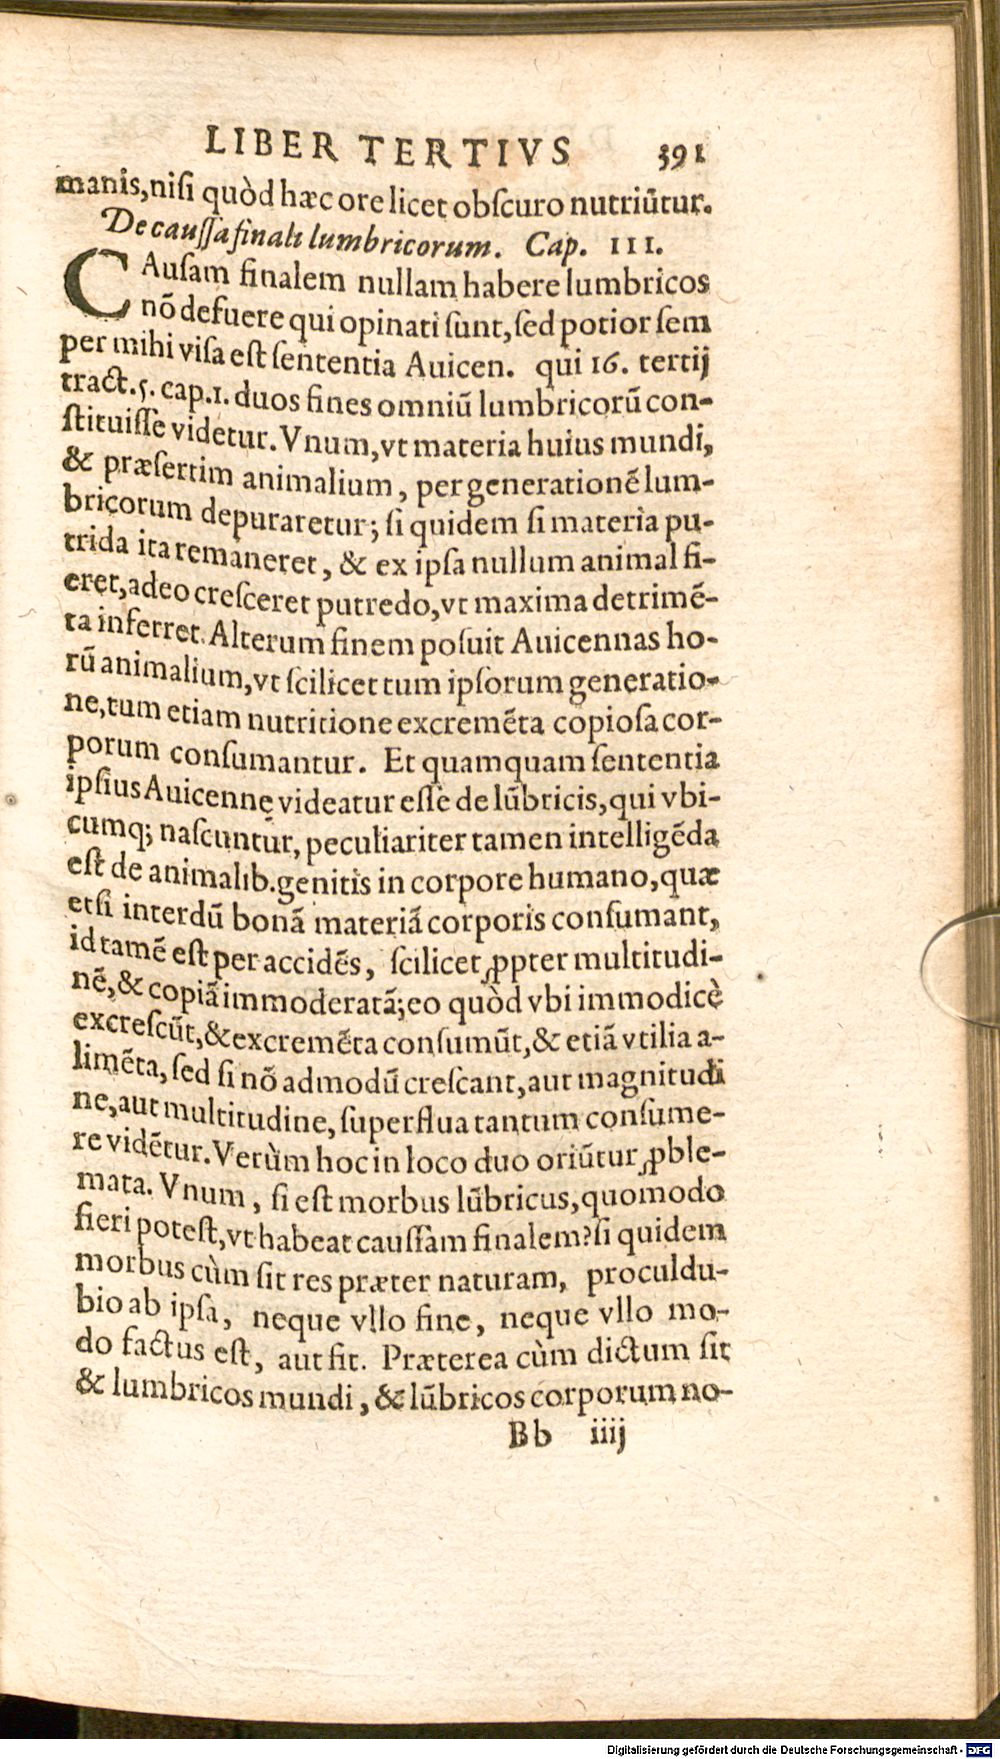 LIBER TERTIVS 391
manis, nisi quòd hæc ore licet obscuro nutriūtur.
De caussa finali lumbricorum. Cap. III.
CAusam finalem nullam habere lumbricos
nō defuere qui opinati sunt, sed potior sem
per mihi visa est sententia Auicen. qui 16. tertij
tract. 5. cap. 1. duos fines omniū lumbricorū con-
stituisse videtur. Vnum, vt materia huius mundi,
& præsertim animalium, per generationē lum-
bricorum depuraretur; si quidem si materia pu-
trida ita remaneret, & ex ipsa nullum animal fi-
eret, adeo cresceret putredo, vt maxima detrimē-
ta inferret. Alterum finem posuit Auicennas ho-
rū animalium, vt scilicet tum ipsorum generatio-
ne, tum etiam nutritione excremēta copiosa cor-
porum consumantur. Et quamquam sententia
ipsius Auicennę videatur esse de lūbricis, qui vbi-
cumq; nascuntur, peculiariter tamen intelligēda
est de animalib. genitis in corpore humano, quæ
etsi interdū bonā materiā corporis consumant,
id tamē est per accidēs, scilicet ꝓpter multitudi-
nē, & copiā immoderatā; eo quòd vbi immodicè
excrescūt, & excremēta consumūt, & etiā vtilia a-
limēta, sed si nō admodū crescant, aut magnitudi
ne, aut multitudine, superflua tantum consume-
re vidētur. Verùm hoc in loco duo oriūtur ꝓble-
mata. Vnum, si est morbus lūbricus, quomodo
fieri potest, vt habeat caussam finalem? si quidem
morbus cùm sit res præter naturam, proculdu-
bio ab ipsa, neque vllo fine, neque vllo mo-
do factus est, aut fit. Præterea cùm dictum sit
& lumbricos mundi, & lūbricos corporum no-
Bb iiij
Digitalisierung gefördert durch die Deutsche Forschungsgemeinschaft - DFG